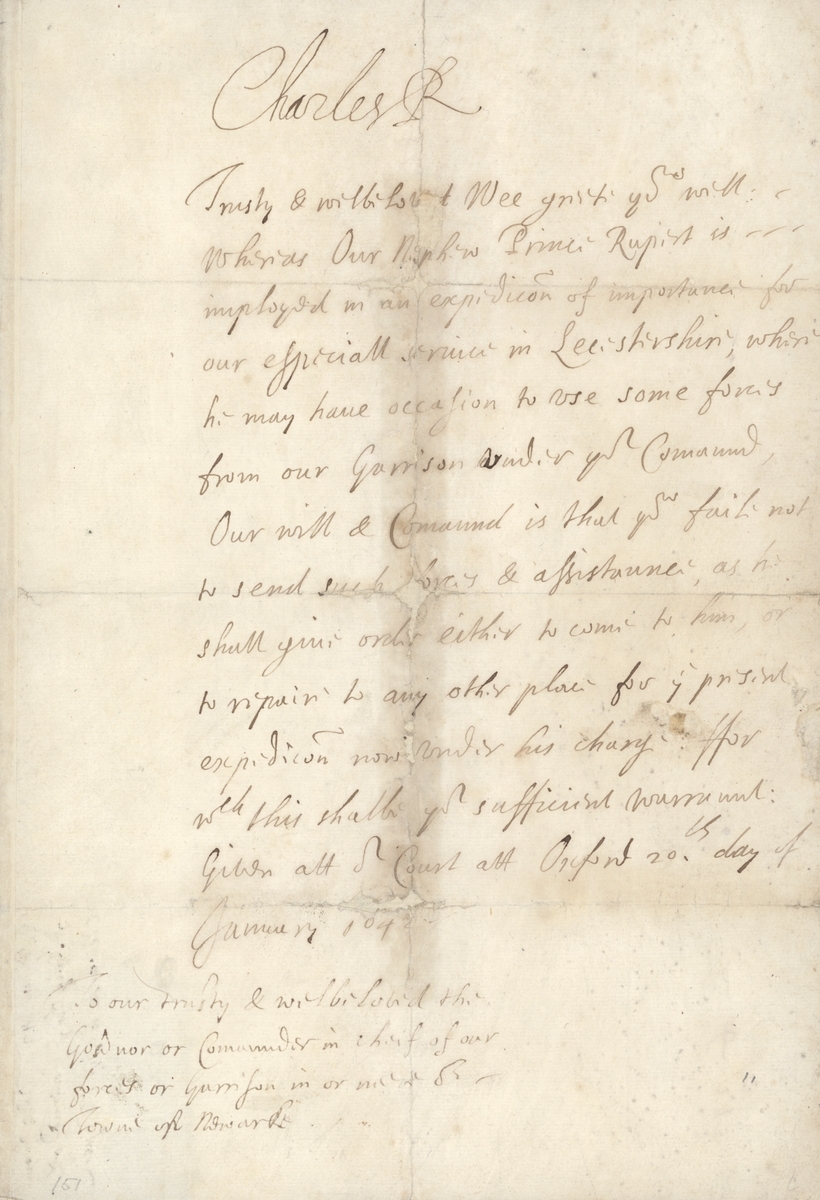 Charles R
Trusty & welbelov t Wee greete yow well:
Whereas Our Nephew Prince Rupert is
imployed in an expedicon of importance for
our especiall service in Lecestershire, where
he may have occasion to vse some forces
from our Garrison vnder yor Comaund,
Our will & Comaund is that yow faile not
to send such forces & assistaunce, as he
shall give order either to come to him, or
to repaire to any other place for ye present
expedicon now vnder his charge: ffor
wch this shalbe yor sufficient warrant:
Given att or Court att Oxford 20.th day of
January 164
To our trusty & welbeloved the
Governor or Comaunder in cheif of our
forces or Garrison in or neere or
Towne of Newarke
151